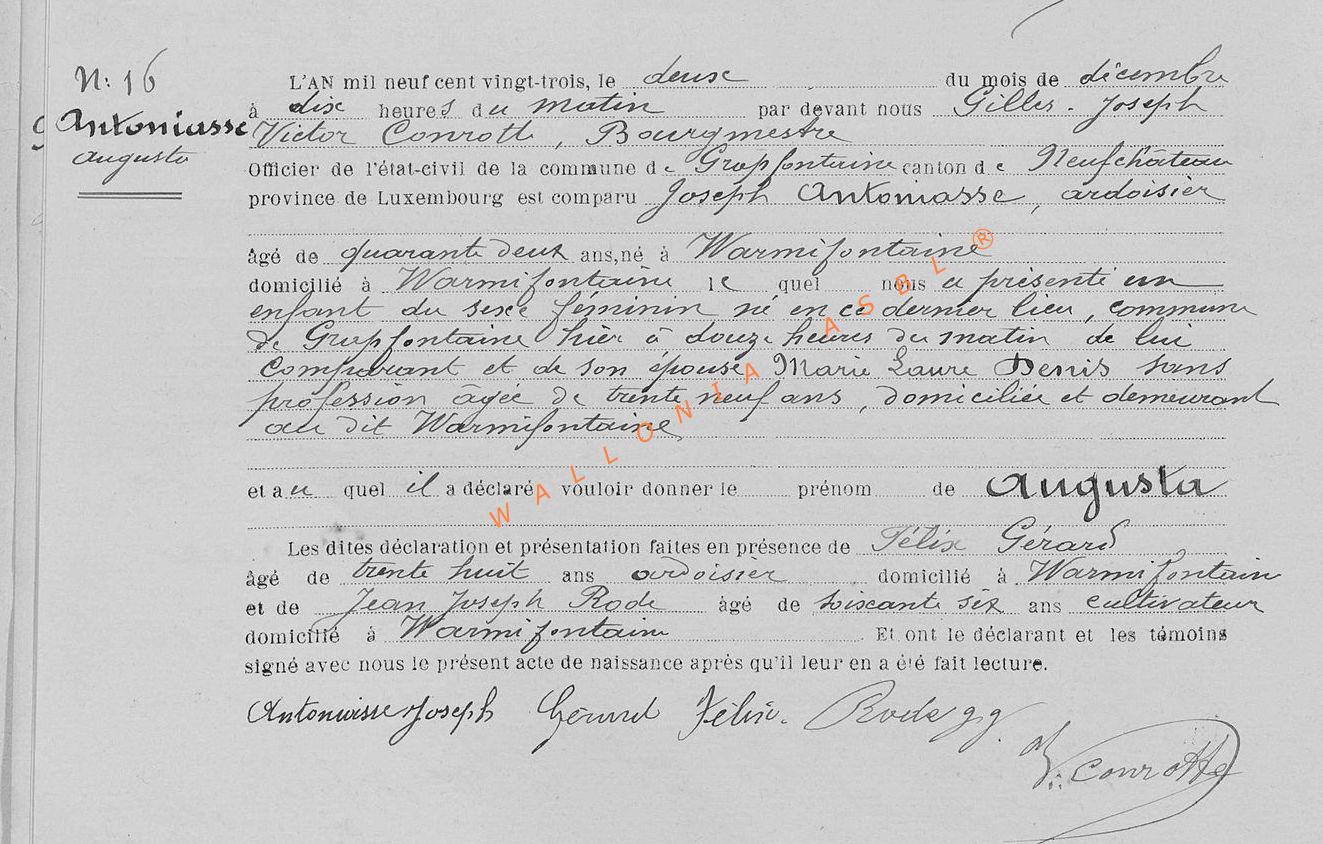 N: 16
Antoniasse
Augusta
L'AN mil neuf cent vingt-trois, le deux du mois de décembre
à dix heures du matin par devant nous Gilles-Joseph
Victor Conrotte, Bourgmestre
Officier de l'état-civil de la commune de Grapfontaine canton de Neufchâteau
province de Luxembourg est comparu Joseph Antoniasse, ardoisier
âgé de quarante deux ans, né à Warmifontaine
domicilié à Warmifontaine lequel nous a présenté un
enfant du sexe féminin né en ce dernier lieu, commune
de Grapfontaine hier à douze heures du matin de lui
Comparant et de son épouse Marie Laure Denis sans
profession âgée de trente neuf ans, domiciliée et demeurant
au dit Warmifontaine
et au quel il a déclaré vouloir donner le prénom de Augusta
Les dites déclaration et présentation faites en présence de Félix Gérard
âgé de trente huit ans ardoisier domicilié à Warmifontaine
et de Jean Joseph Rode âgé de soixante six ans cultivateur
domicilié à Warmifontaine Et ont le déclarant et les témoins
signé avec nous le présent acte de naissance après qu'il leur en a été fait lecture.
Antoniasse Joseph Gérard Félix. Rode
Conrotte
WALLONIA ASBL ®